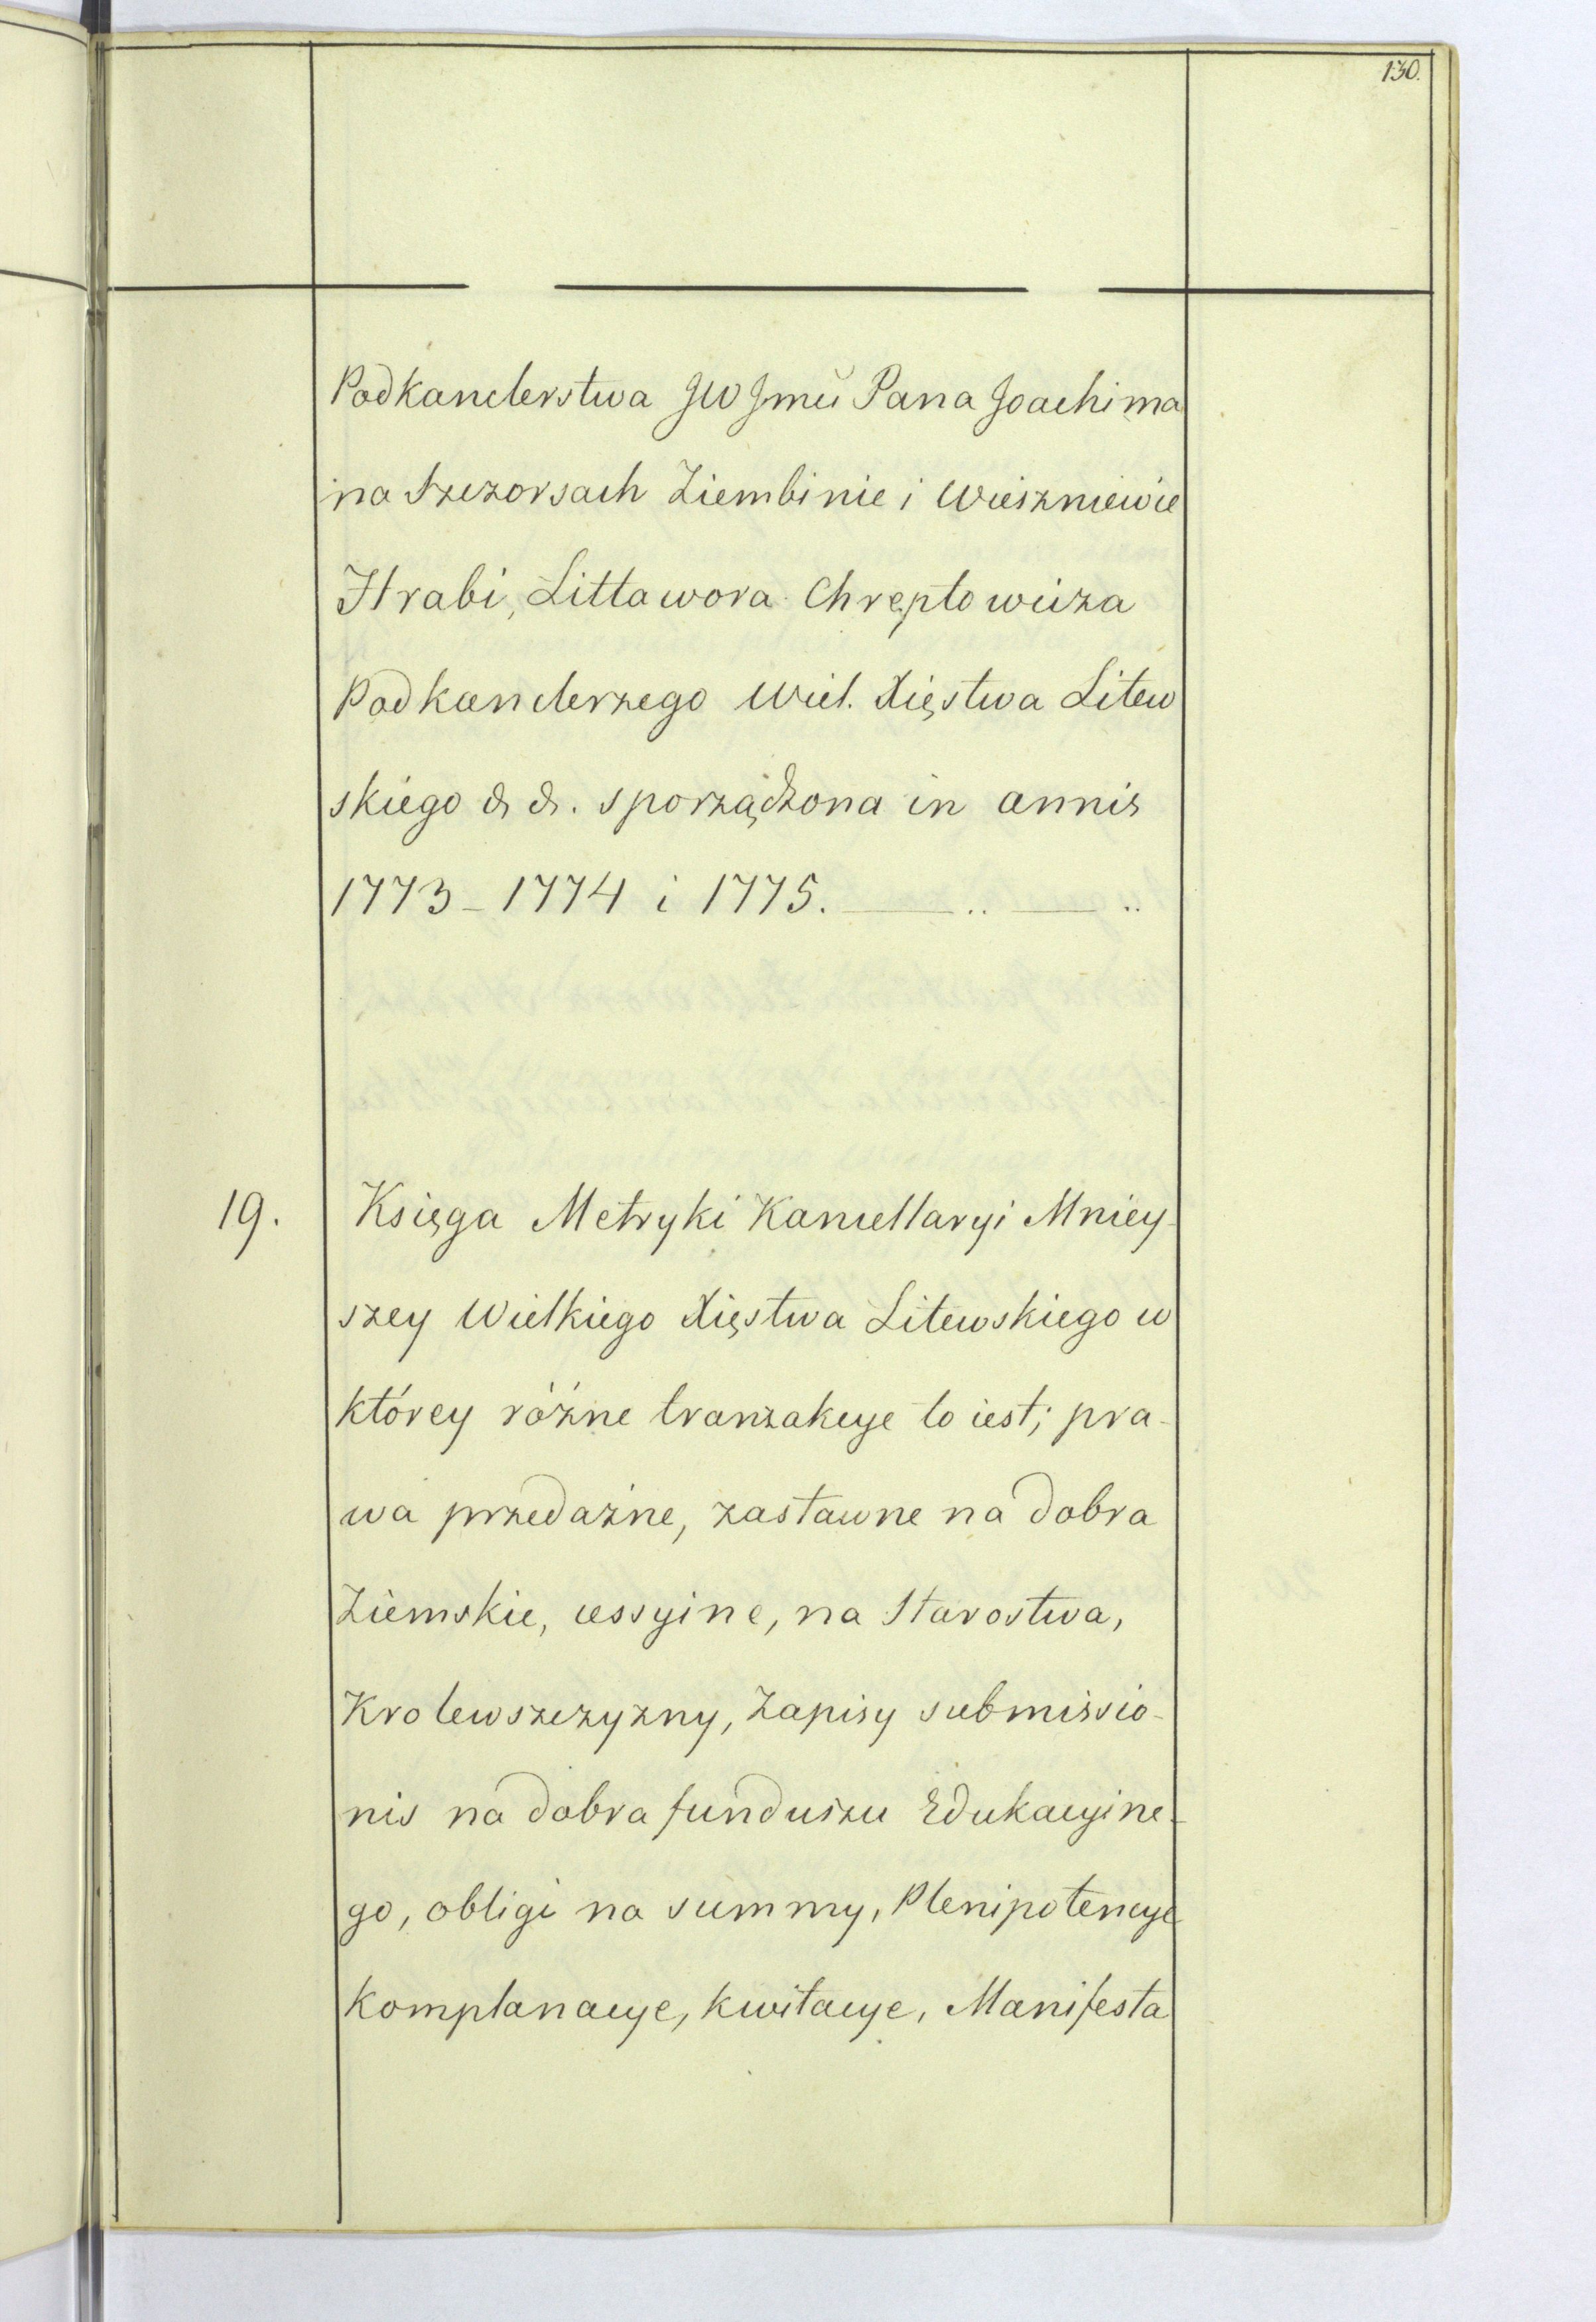 130.
Podkanclerstwa JW Jmci Pana Joachima
na Szczorsach Ziembinie i Wiszniewie
Hrabi, Littawora Chreptowicza
Podkanclerzego Wiel. Xięstwa Litew
skiego & &. sporządzona in annis
1773 - 1774 i 1775. — .. — ..
19. Księga Metryki Kancellaryi Mniey-
szey Wielkiego Xięstwa Litewskiego w
którey różne tranzakcye to iest; pra-
wa przedażne, zastawne na dobra
Ziemskie, cessyine, na Starostwa,
Krolewszczyzny, Zapisy submissio-
nis na dobra funduszu Edukacyine-
go, obligi na summy, Plenipotencye
Komplanacye, kwitacye, Manifesta